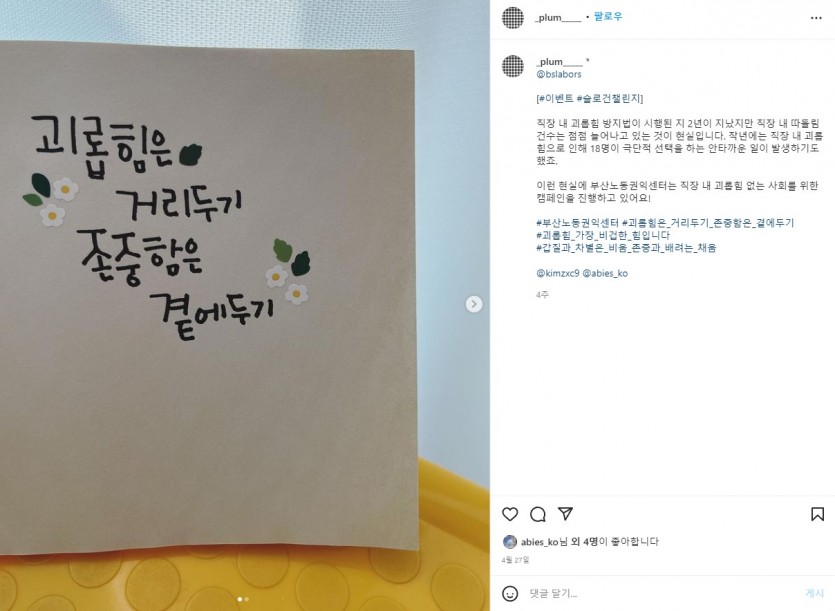 괴롭힘은
거리두기
존중함은
곁에두기
_plum_____ • 팔로우
_plum_____ *
@bslabors
[#이벤트 #슬로건챌린지]
직장 내 괴롭힘 방지법이 시행된 지 2년이 지났지만 직장 내 따돌림
건수는 점점 늘어나고 있는 것이 현실입니다. 작년에는 직장 내 괴롭
힘으로 인해 18명이 극단적 선택을 하는 안타까운 일이 발생하기도
했죠.
이런 현실에 부산노동권익센터는 직장 내 괴롭힘 없는 사회를 위한
캠페인을 진행하고 있어요!
#부산노동권익센터 #괴롭힘은_거리두기_존중함은_곁에두기
#괴롭힘_가장_비겁한_힘입니다
#갑질과_차별은_비움_존중과_배려는_채움
@kimzxc9 @abies_ko
4주
abies_ko님 외 4명이 좋아합니다
4월 27일
댓글 달기...
게시